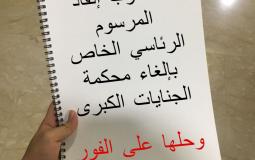 المرسوم
الرئاسي الخاص
بإلغاء محكمة
الجنايات الكبرى
وحلها على الفور